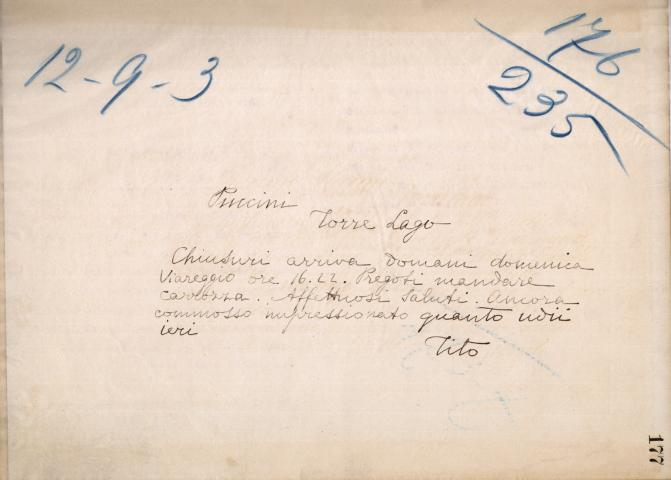 12-9-3
176
235
Puccini
Torre Lago
Chiusuri arriva domani domenica
Viareggio ore 16.22. Pregosi mandare
carrozza. Affettuosi saluti. Ancora
commosso impressionato quanto udii
ieri
Tito
177